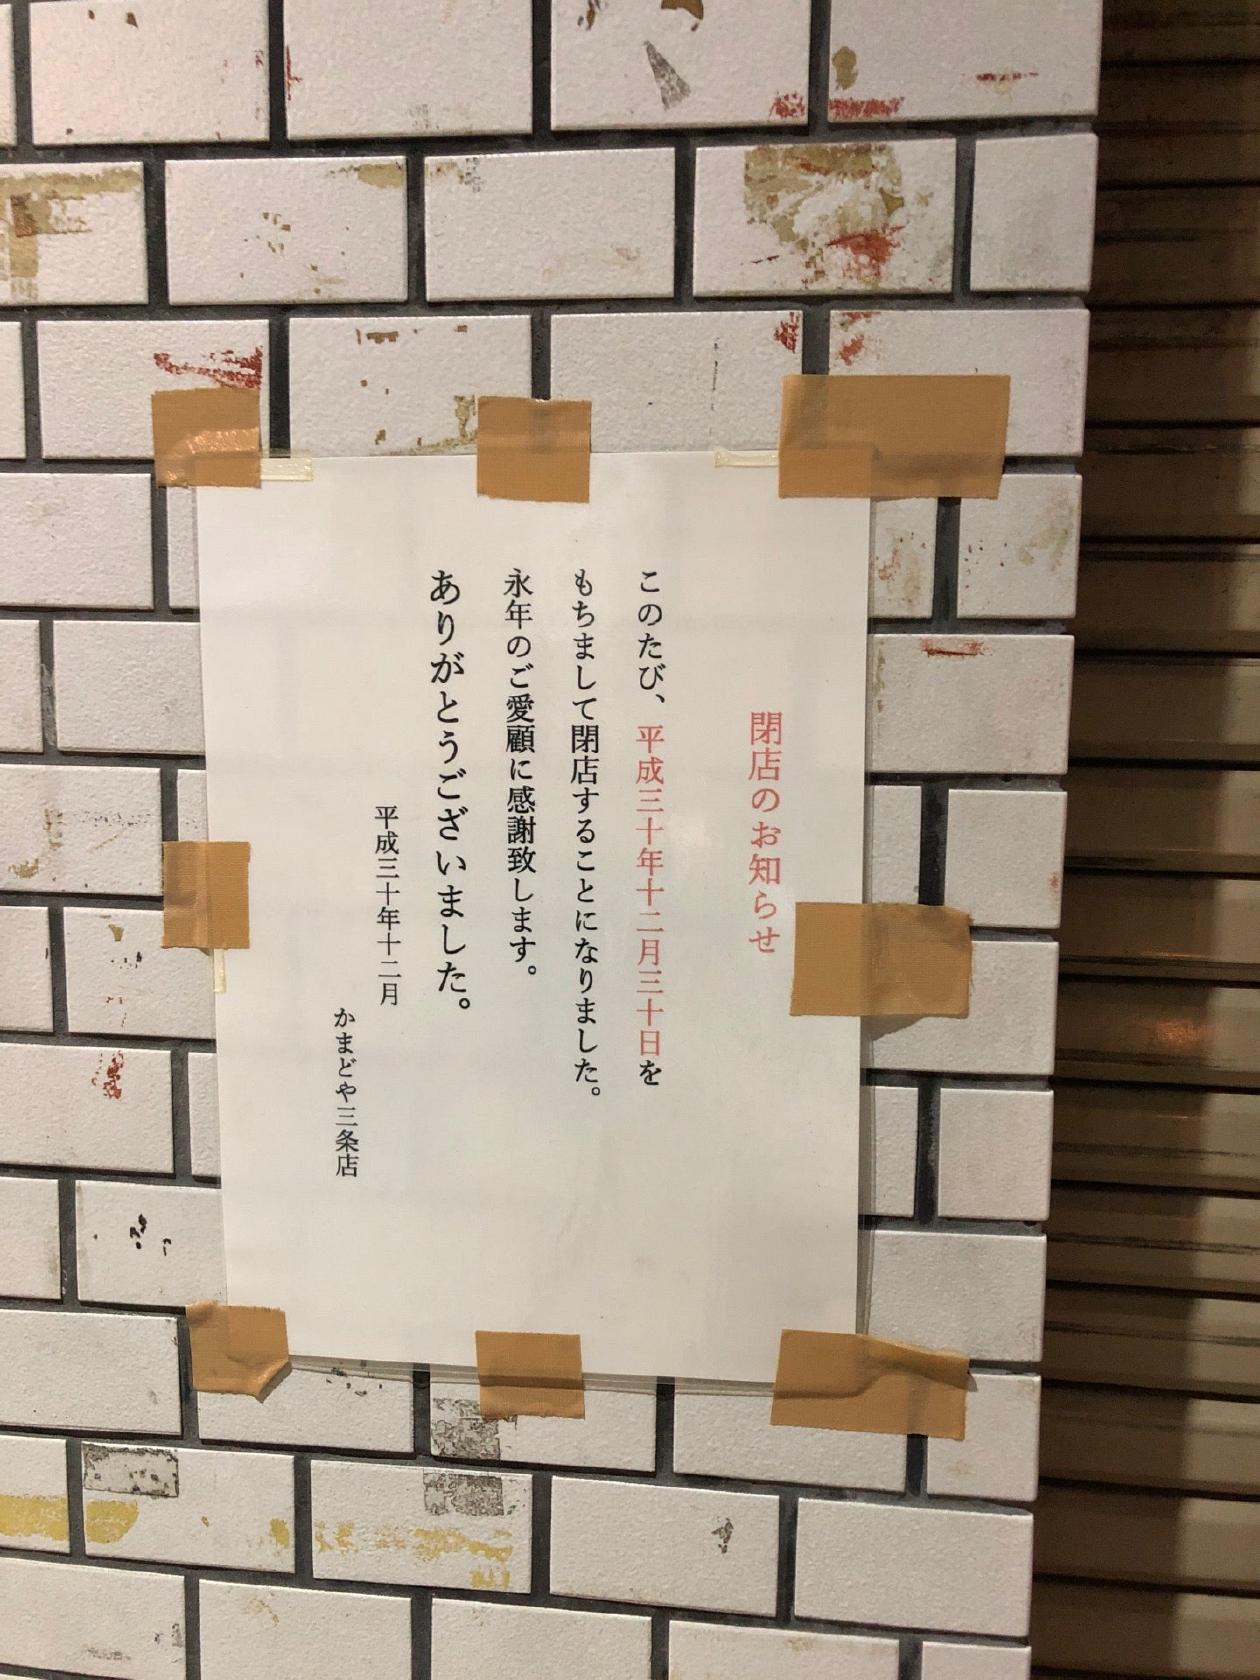 閉店のお知らせ
このたび、平成三十年十二月三十日を
もちまして閉店することになりました。
永年のご愛顧に感謝致します。
ありがとうございました。
平成三十年十二月
かまどや三条店